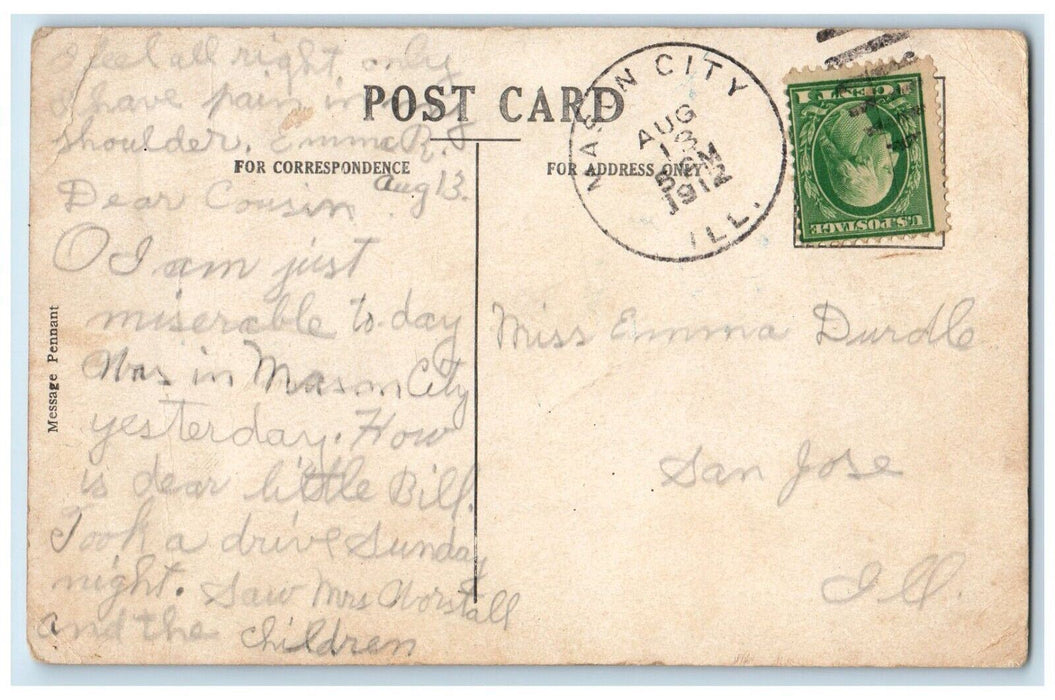 I feel all right, only
I have pain in my
shoulder. Emma R. J
POST CARD
FOR CORRESPONDENCE
FOR ADDRESS ONLY
MASON CITY
AUG
13
5 PM
1912
ILL.
1 CENT 1
U.S. POSTAGE
Aug 13.
Dear Cousin
O I am just
miserable to-day
Was in Mason City
yesterday. How
is dear little Bill.
Took a drive Sunday
night. Saw Mrs Worstall
and the children
Message Pennant
Miss Emma Durdle
San Jose
Ill.